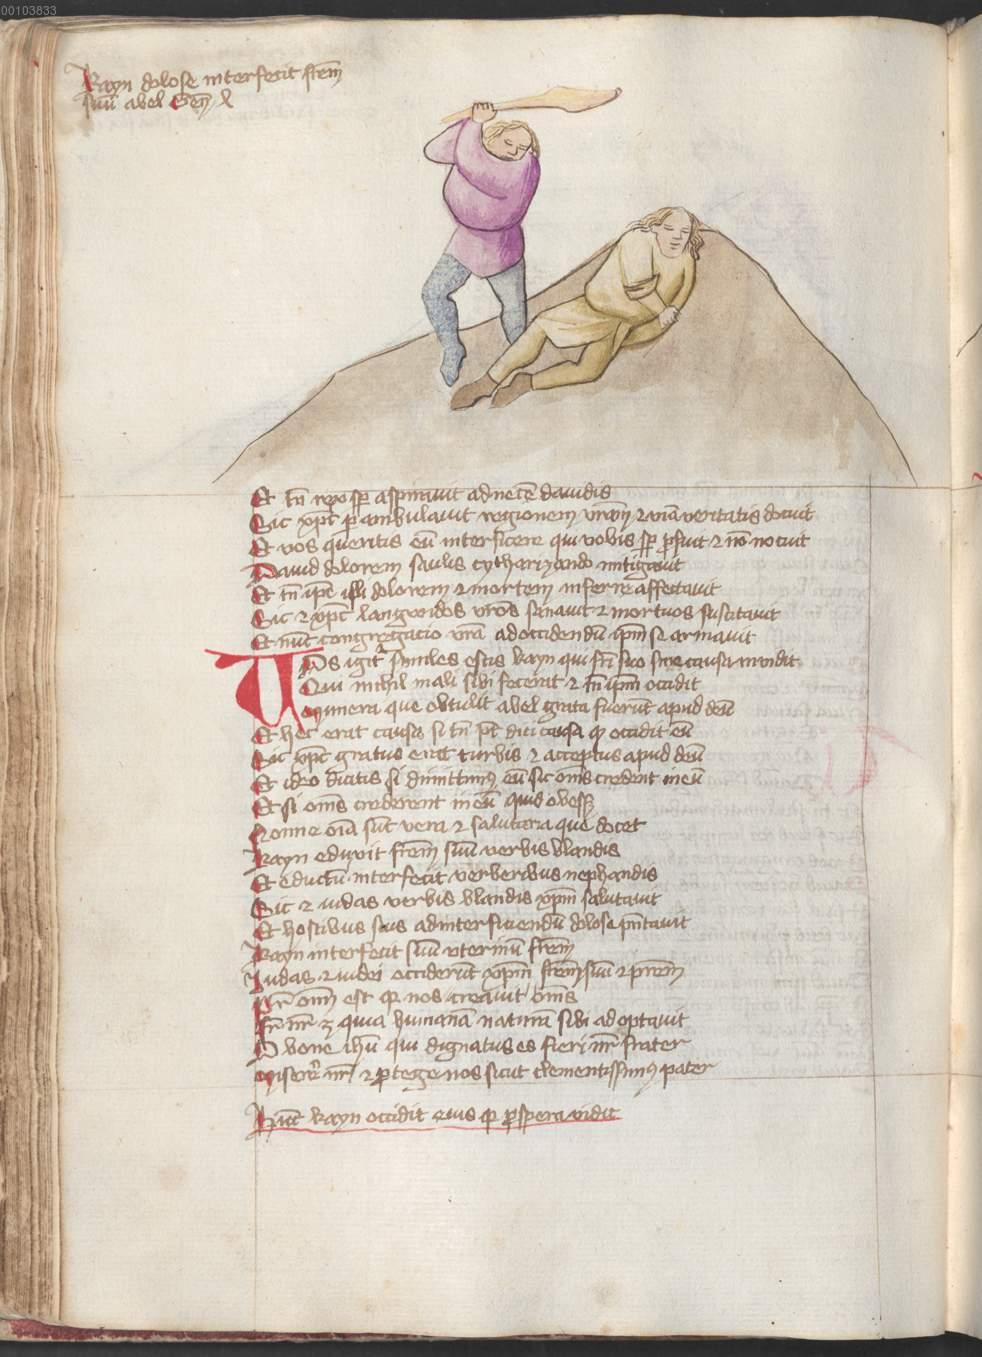 00103833
Kayn dolose interfecit frem
suu abel Gen
Et tn rex sp aspiravit ad necē davidis
Sic xpc pambulavit regionem vram 2 viā veritatis docuit
Et vos queritis eū interficere qui vobis sp pfuit 2 nō nocuit
David dolorem saulis cytharizando mitigavit
Et tn ipe illi dolorem 2 mortem inferre affectavit
Sic 2 xpc languidos vros sanavit 2 mortuos suscitavit
Et nūc congregacio vrā ad occidendū ipm se armavit
Vos igitr similes estis kayn qui fri suo sine causa invidit
Qui nichil mali sibi fecerat 2 tn ipm occidit
Munera que obtulit abel grata fuerūt apud deū
Et hec erat causa si tn pt dici causa q occidit eū
Sic xpc gratus erat turbis 2 acceptus apud deū
Et ideo dicitis si dimittimus eū sic oms credent in eū
Et si oms crederent in eū quid obess
Nonne oīa sūt vera 2 salutaria que docet
Kayn eduxit frem suū verbis blandis
Et eductū interfecit verberibus nephandis
Sic 2 iudas verbis blandis xpm salutavit
Et hostibus suis ad interficiendū dolose pntavit
Kayn interfecit suū uterinū frem
Judas 2 iudei occiderūt xpm frem suū 2 prem
Pr om est q nos creavit oms
Fr nr 3 quia humanā naturā sibi adoptavit
O bone ihu qui dignatus es fieri nr frater
Miserere nri 2 ptege nos sicut clementissimus pater
Hūc kayn occidit eius q pspera vidit